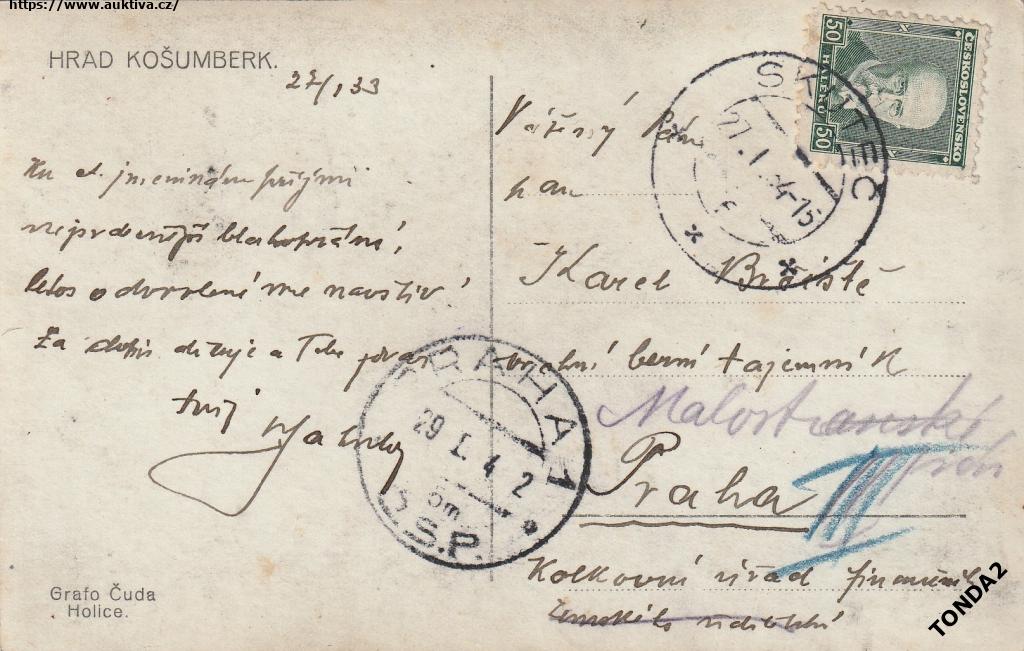 https://www.auktiva.cz/
HRAD KOŠUMBERK.
27/1 33
Ku d. jmeninám přijmi
nejsrdečnější blahopřání,
letos o dovolené mne navštiv
Za dopis děkuje a Tebe
tvůj
Vážený Pán
pan
Karel
vrchní berní tajemník
Malostranské
Praha III
Kolkovní úřad finanční
zemského ředitelství
SKUTEČ
27. I 14-15
PRAHA 1
29 I. 4 2
OSP.
ČESKOSLOVENSKO
50 HALÉŘŮ 50
Grafo Čuda
Holice.
TONDA2